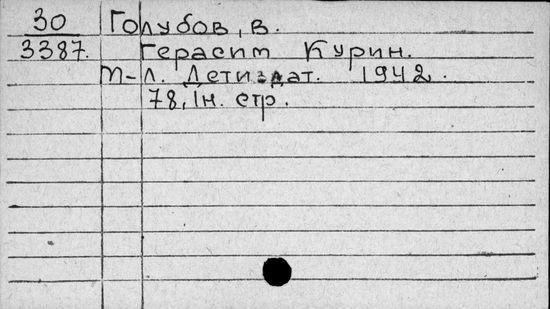 30 Голубов, В.
3387. Герасим Курин.
М-Л. Детиздат. 1942.
78, 1н. стр.